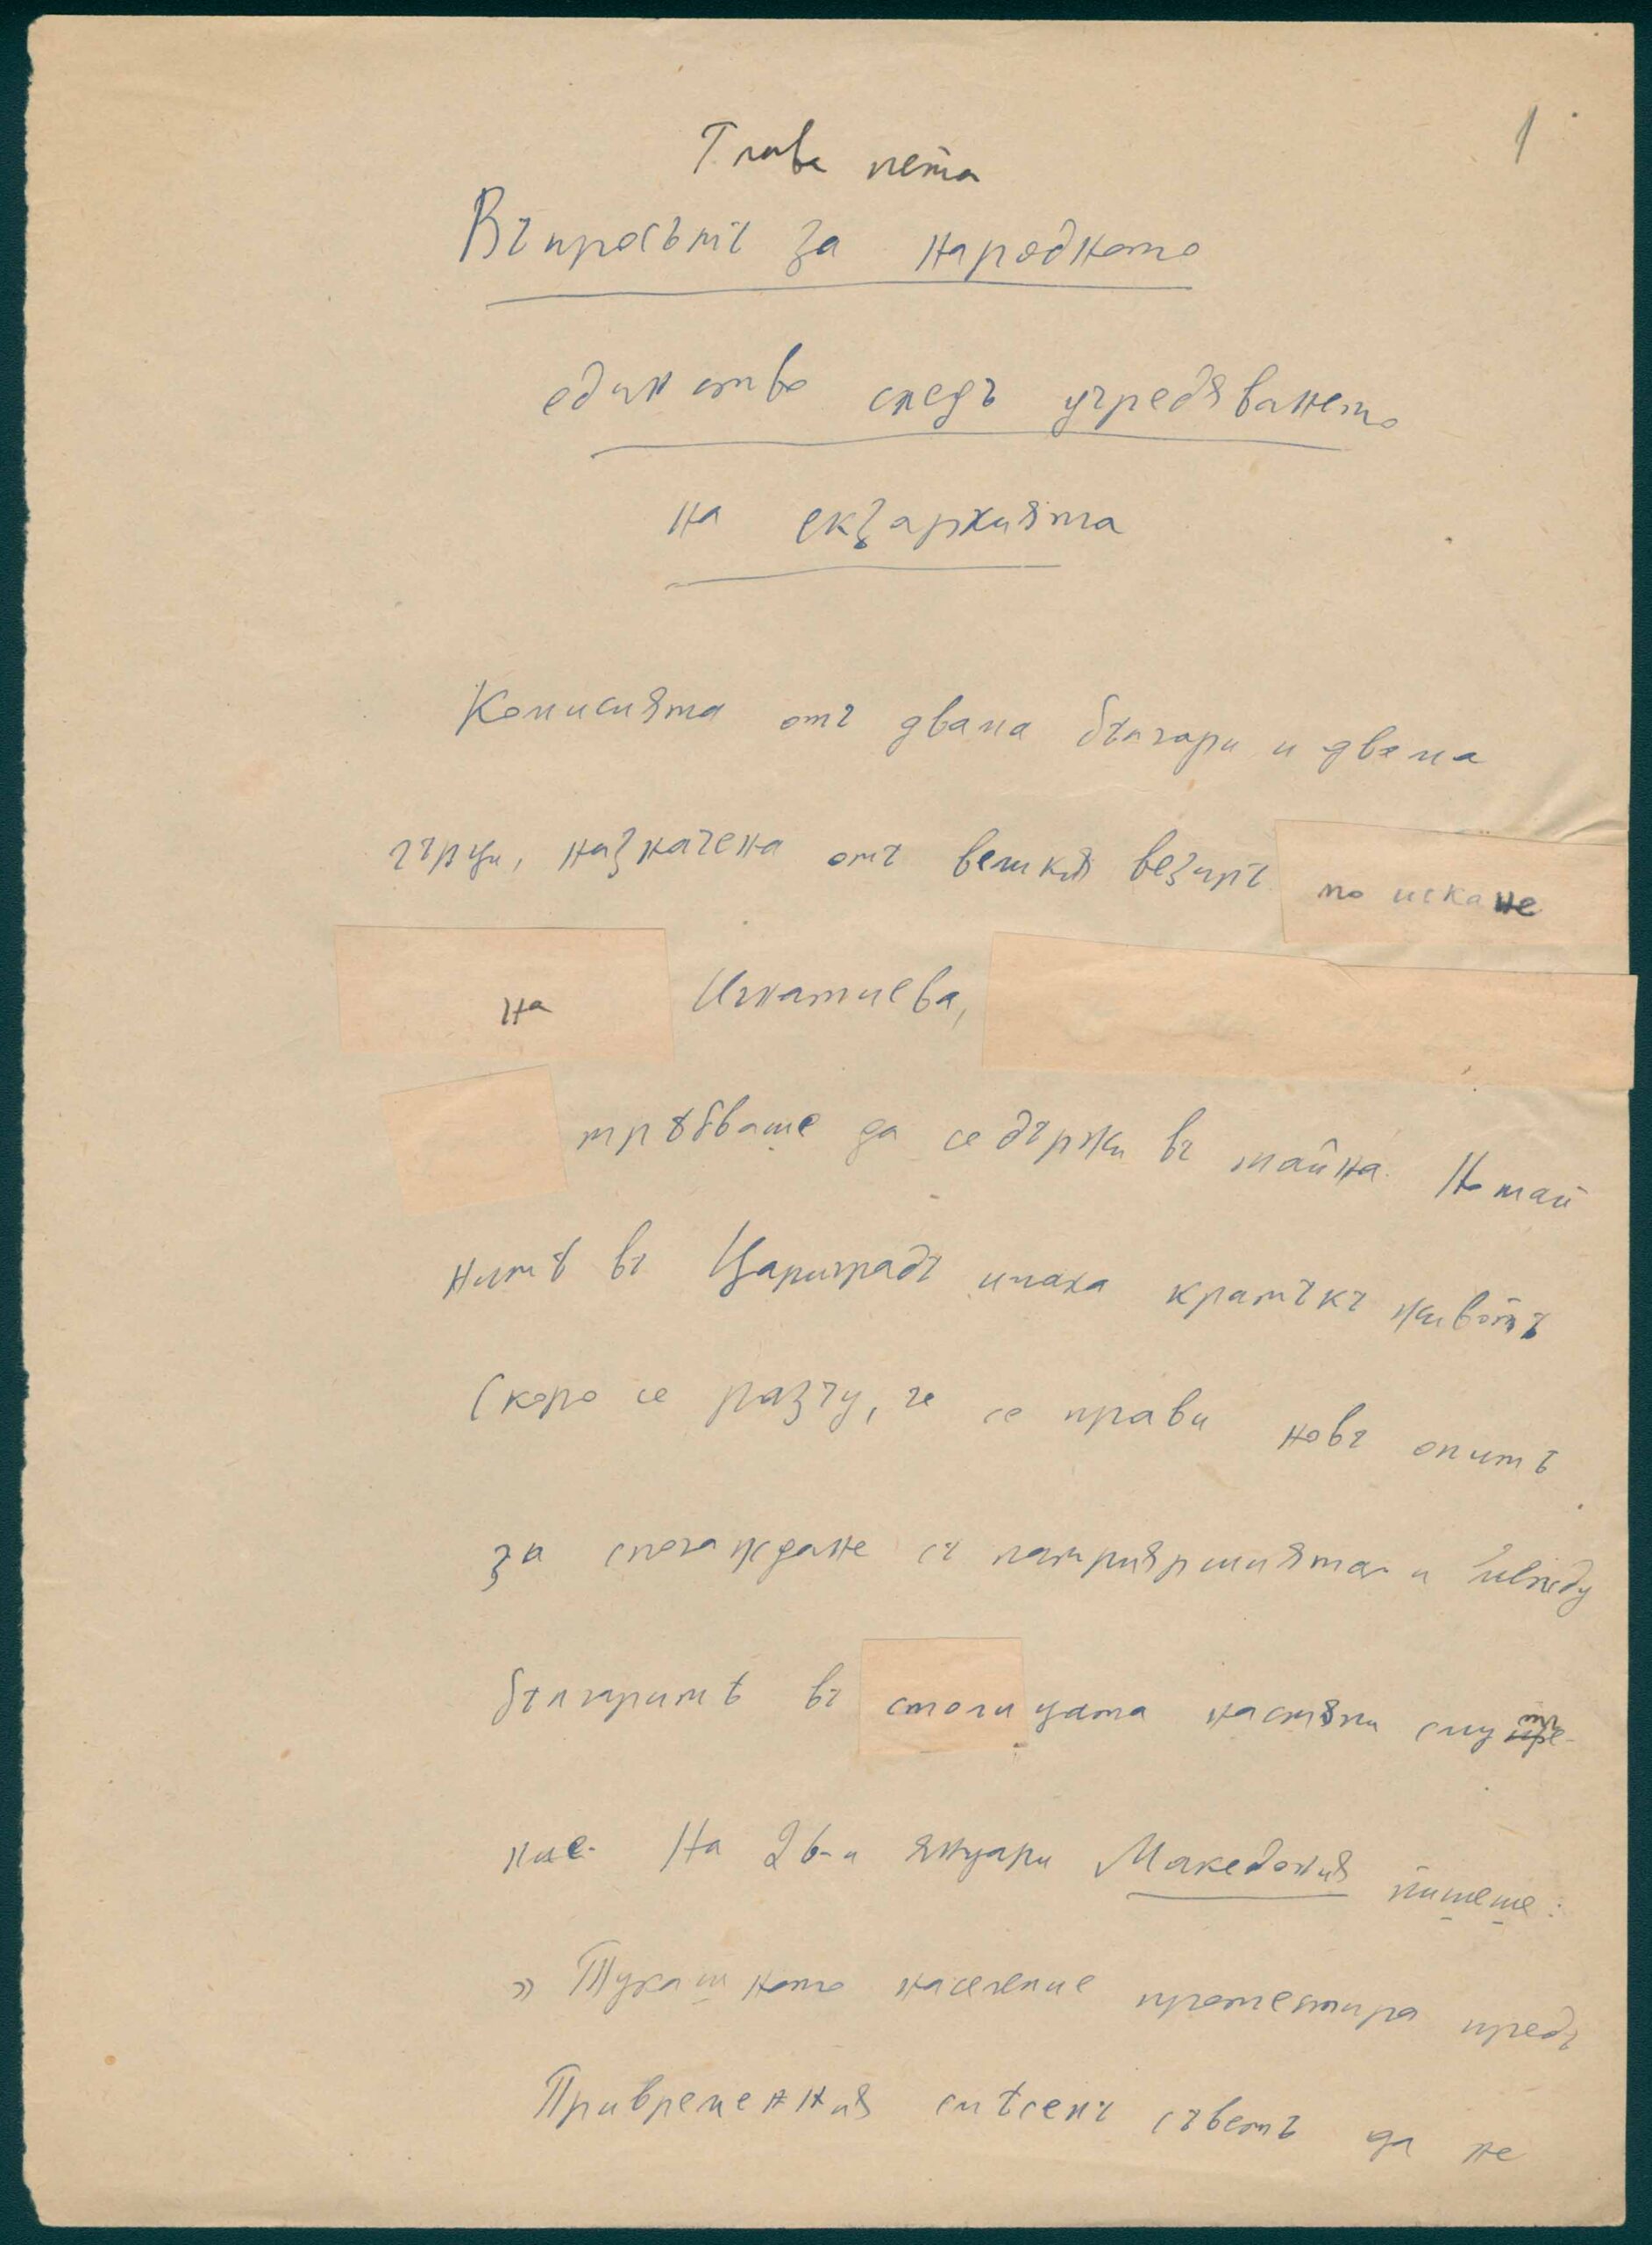 1
Глава пета
Въпросътъ за народното
единство следъ учредяването
на екзархията
Комисията отъ двама българи и двама
гърци, назначена отъ великия везиръ по искане
на Игнатиева,
трѣбваше да се държи въ тайна. Но тай
нитѣ въ Цариградъ имаха кратъкъ животъ
Скоро се разчу, че се прави новъ опитъ
за спогаждане съ патриаршията и между
българитѣ въ столицата настѫпи смуте-
ние. На 26-и януари Македония пишеше:
» Тукашното население протестира предъ
Привременния смѣсенъ съветъ да не